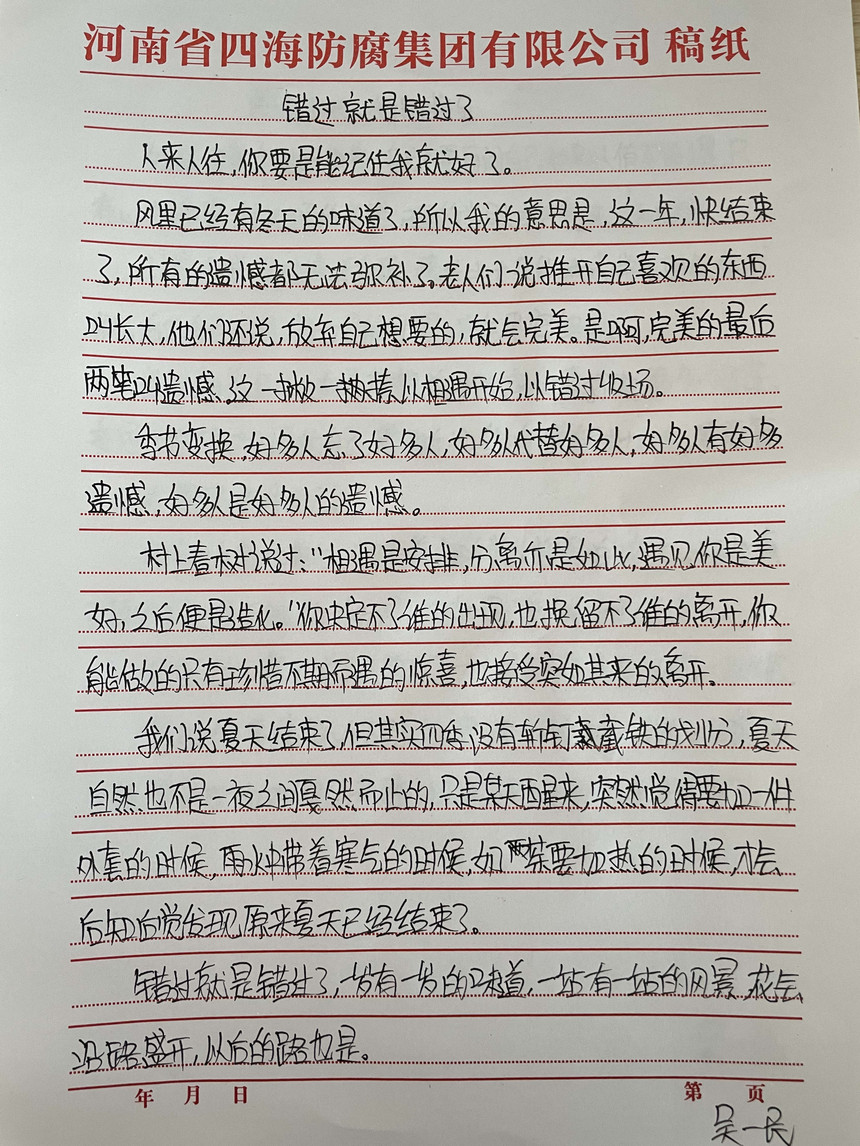 河南省四海防腐集团有限公司 稿纸
错过就是错过了
人来人往,你要是能记住我就好了。
风里已经有冬天的味道了,所以我的意思是,这一年,快结束
了,所有的遗憾都无法弥补了。老人们说推开自己喜欢的东西
叫长大,他们还说,放弃自己想要的,就会完美。是啊,完美的最后
两笔叫遗憾,这一撇一捺,以相遇开始,以错过收场。
季节变换,好多人忘了好多人,好多人代替好多人,好多人有好多
遗憾,好多人是好多人的遗憾。
村上春树说过:"相遇是安排,分离亦是如此,遇见你是美
好,之后便是造化。"你决定不了谁的出现,也挽留不了谁的离开,你
能做的只有珍惜不期而遇的惊喜,也接受突如其来的离开。
我们说夏天结束了,但其实四季没有斩钉截铁的划分,夏天
自然也不是一夜之间戛然而止的,只是某天醒来,突然觉得要加一件
外套的时候,雨水中带着寒气的时候,奶茶要加热的时候,才会
后知后觉发现原来夏天已经结束了。
错过就是错过了,一岁有一岁的味道,一站有一站的风景,花会
沿路盛开,以后的路也是。
年 月 日 第 页
吴一民